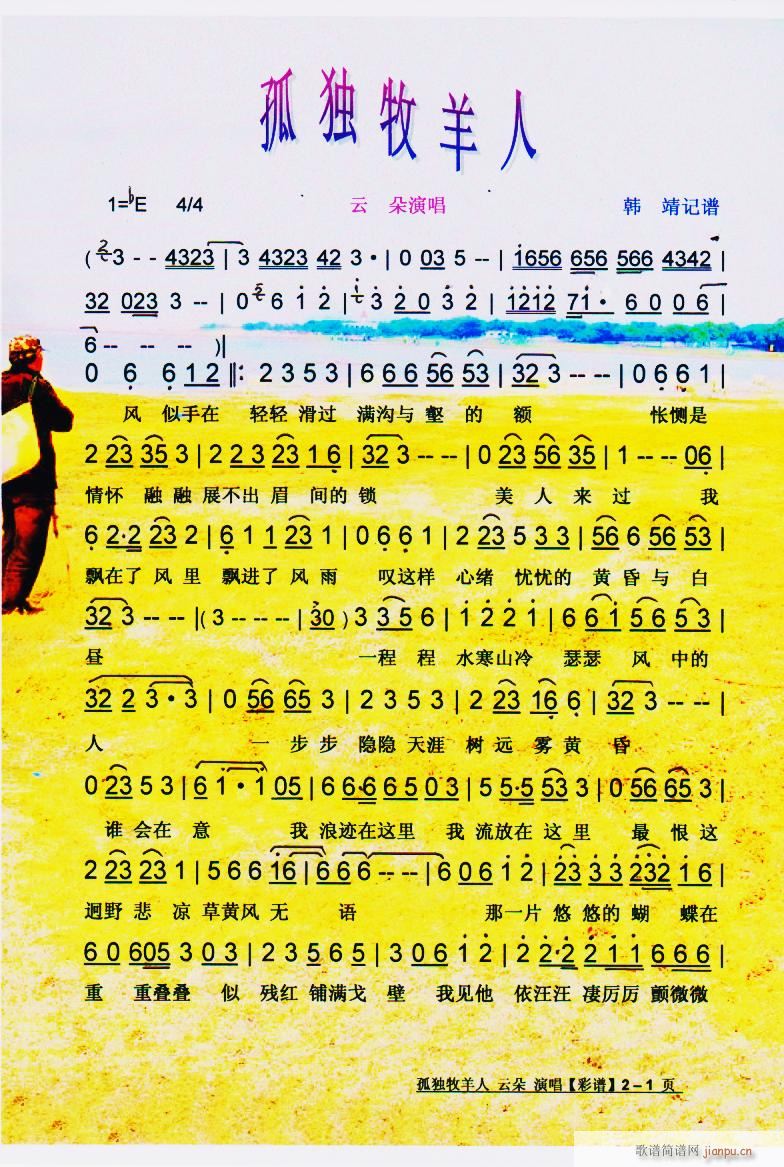 孤独牧羊人
1=♭E 4/4 云 朵演唱 韩 靖记谱
( 3 - - 4323 | 3 4323 42 3 • | 0 03 5 -- | 1656 656 566 4342 |
32 023 3 -- | 0 6 1 2 | 3 2 0 3 2 | 1212 71• 6 0 0 6 |
6 -- -- -- )|
0 6 612 ‖: 2 3 5 3 | 6 6 6 56 53 | 32 3 -- | 0 6 6 1 |
风 似手在 轻轻 滑过 满沟与 壑 的 额 怅恻是
2 23 35 3 | 2 2 3 23 1 6 | 32 3 -- -- | 0 23 56 35 | 1 -- -- 06 |
情怀 融融 展不出 眉 间的 锁 美 人 来 过 我
6 2·2 23 2 | 6 1 1 23 1 | 0 6 6 1 | 2 23 5 3 3 | 56 6 56 53 |
飘在了 风里 飘进了 风雨 叹这样 心绪 忧忧的 黄昏与 白
32 3 -- -- |( 3 -- -- -- | 30 ) 3 3 5 6 | 1 2 2 1 | 6 6 1 5 6 5 3 |
昼 一程 程 水寒山冷 瑟瑟 风 中的
32 2 3 • 3 | 0 56 65 3 | 2 3 5 3 | 2 23 16 6 | 32 3 -- -- |
人 一 步步 隐隐 天涯 树 远 雾黄 昏
0 23 5 3 | 6 1 • 1 05 | 6 66 6 5 0 3 | 5 5·5 53 3 | 0 56 65 3 |
谁 会在 意 我 浪迹在这里 我 流放在 这 里 最 恨 这
2 23 23 1 | 5 6 6 16 | 6 6 6 -- -- | 6 0 6 1 2 | 23 3 3 232 1 6 |
迥野 悲 凉 草黄风 无 语 那一片 悠 悠的 蝴 蝶在
6 0 605 3 0 3 | 2 3 5 6 5 | 3 0 6 1 2 | 2 2·2 2 1 1 6 6 6 |
重 重叠叠 似 残红 铺满戈 壁 我见他 依汪汪 凄厉厉 颤微微
孤独牧羊人 云朵 演唱【彩谱】2－1 页
歌谱简谱网 jianpu.cn